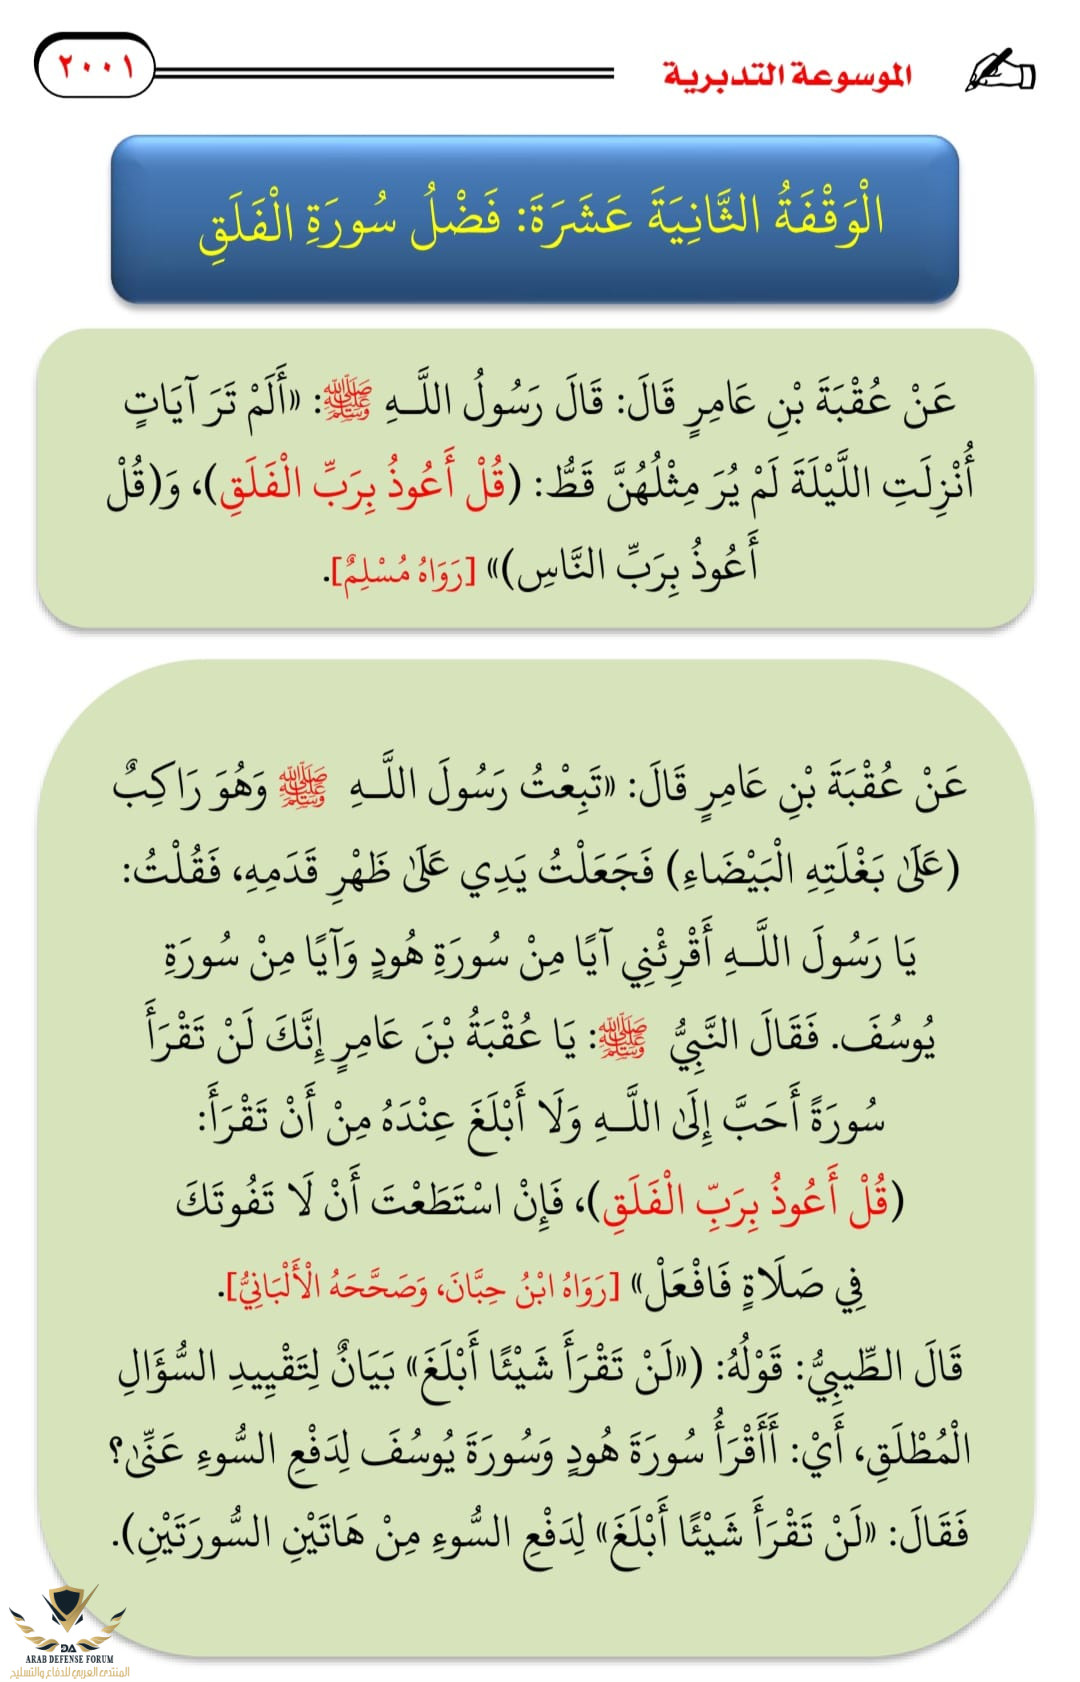 الموسوعة التدبرية
٢٠٠١
الْوَقْفَةُ الثَّانِيَةَ عَشَرَةَ: فَضْلُ سُورَةِ الْفَلَقِ
عَنْ عُقْبَةَ بْنِ عَامِرٍ قَالَ: قَالَ رَسُولُ اللَّـهِ ﷺ: «أَلَمْ تَرَ آيَاتٍ
أُنْزِلَتِ اللَّيْلَةَ لَمْ يُرَ مِثْلُهُنَّ قَطُّ: (قُلْ أَعُوذُ بِرَبِّ الْفَلَقِ)، وَ(قُلْ
أَعُوذُ بِرَبِّ النَّاسِ)» [رَوَاهُ مُسْلِمٌ].
عَنْ عُقْبَةَ بْنِ عَامِرٍ قَالَ: «تَبِعْتُ رَسُولَ اللَّـهِ ﷺ وَهُوَ رَاكِبٌ
(عَلَىٰ بَغْلَتِهِ الْبَيْضَاءِ) فَجَعَلْتُ يَدِي عَلَىٰ ظَهْرِ قَدَمِهِ، فَقُلْتُ:
يَا رَسُولَ اللَّـهِ أَقْرِئْنِي آيًا مِنْ سُورَةِ هُودٍ وَآيًا مِنْ سُورَةِ
يُوسُفَ. فَقَالَ النَّبِيُّ ﷺ: يَا عُقْبَةُ بْنَ عَامِرٍ إِنَّكَ لَنْ تَقْرَأَ
سُورَةً أَحَبَّ إِلَىٰ اللَّـهِ وَلَا أَبْلَغَ عِنْدَهُ مِنْ أَنْ تَقْرَأَ:
(قُلْ أَعُوذُ بِرَبِّ الْفَلَقِ)، فَإِنْ اسْتَطَعْتَ أَنْ لَا تَفُوتَكَ
فِي صَلَاةٍ فَافْعَلْ» [رَوَاهُ ابْنُ حِبَّانَ، وَصَحَّحَهُ الْأَلْبَانِيُّ].
قَالَ الطِّيبِيُّ: قَوْلُهُ: («لَنْ تَقْرَأَ شَيْئًا أَبْلَغَ» بَيَانٌ لِتَقْيِيدِ السُّؤَالِ
الْمُطْلَقِ، أَيْ: أَأَقْرَأُ سُورَةَ هُودٍ وَسُورَةَ يُوسُفَ لِدَفْعِ السُّوءِ عَنِّىٰ؟
فَقَالَ: «لَنْ تَقْرَأَ شَيْئًا أَبْلَغَ» لِدَفْعِ السُّوءِ مِنْ هَاتَيْنِ السُّورَتَيْنِ).
DA
ARAB DEFENSE FORUM
المنتدى العربي للدفاع والتسليح